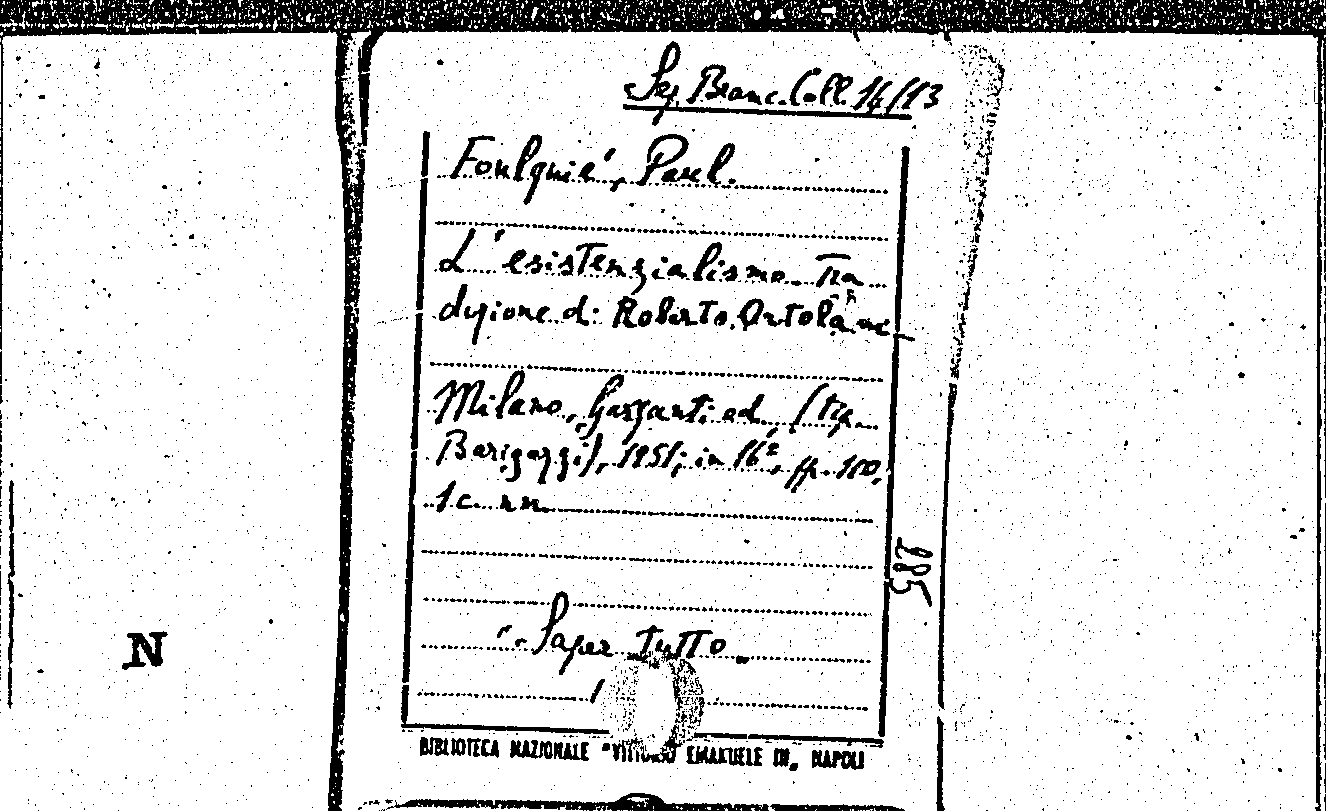 Sez. Branc. Coll. 14/13
Foulquié, Paul.
L'esistenzialismo. Tra
duzione di Roberto Ortolani
Milano, Garzanti ed. (tip.
Barigazzi), 1951; in 16º, pp. 100,
1 c. nn.
285
"Saper tutto"
N
BIBLIOTECA NAZIONALE "VITTORIO EMANUELE III" NAPOLI